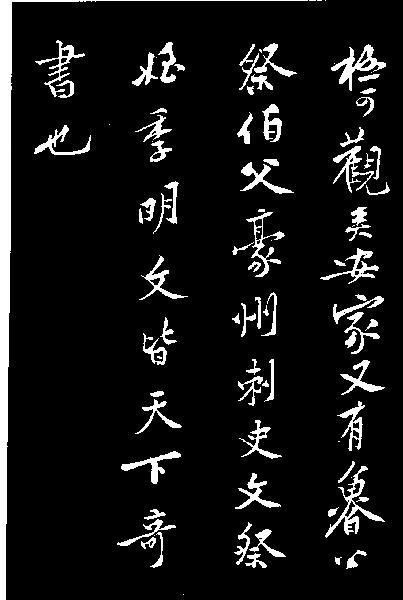 極可觀矣安家又有魯公
祭伯父豪州刺史文祭
姪季明文皆天下奇
書也